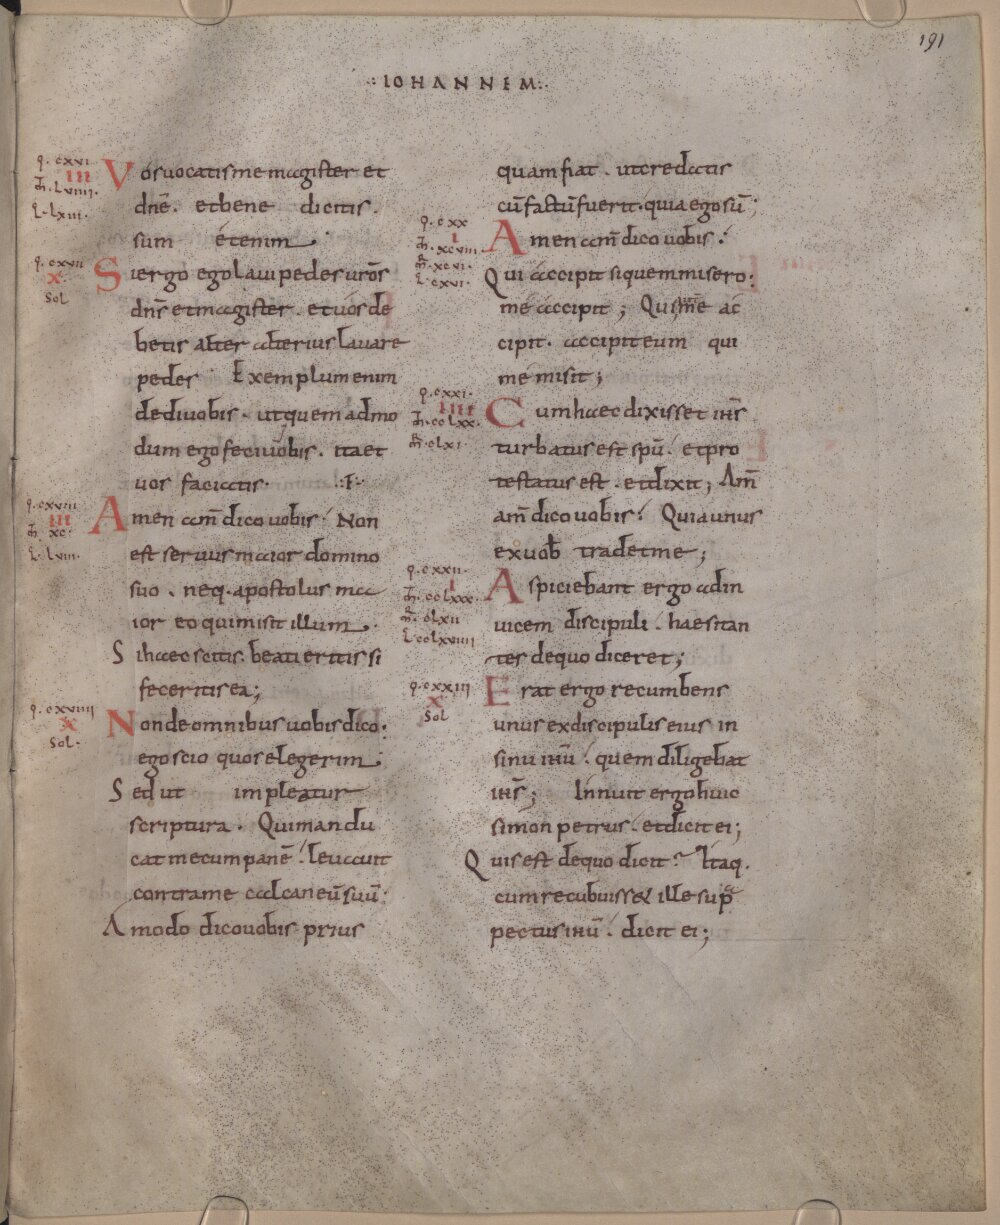 191
·: IOHANNEM :·
q. cxvi
III
Vos uocatis me magister et
dnē. et bene dicitis.
sum etenim.
q. cxvii
X
Sol
Si ergo ego laui pedes uros
dns̄ et magister. et uos de
betis alter alterius lauare
pedes Exemplum enim
dedi uobis. ut quem admo
dum ego feci uobis. ita et
uos faciatis.
q. cxviii
III
Amen am̄ dico uobis. Non
est seruus maior domino
suo. neq. apostolus ma
ior eo qui misit illum.
Si haec scitis. beati eritis si
feceritis ea;
q. cxviiii
X
Sol.
Non de omnibus uobis dico:
ego scio quos elegerim;
Sed ut impleatur
scriptura. Qui mandu
cat mecum panē. leuauit
contra me calcaneū suū:
A modo dico uobis prius
quam fiat. ut credatis
cū factū fuerit. quia ego sū;
q. cxx
I
Amen am̄ dico uobis.
Qui accipit si quem misero:
me accipit; Qui me ac
cipit. accipit eum qui
me misit;
q. cxxi.
IIII
Cum haec dixisset ihs̄
turbatus est spū. et pro
testatus est. et dixit; Am̄
am̄ dico uobis. Quia unus
ex uob tradet me;
q. cxxii.
I
Aspiciebant ergo ad in
uicem discipuli. haesitan
tes de quo diceret;
q. cxxiii
X
Sol
Erat ergo recumbens
unus ex discipulis eius in
sinu ihū. quem diligebat
ihs̄; Innuit ergo huic
simon petrus. et dicit ei;
Quis est de quo dicit? Itaq.
cum recubuiss& ille sup
pectus ihū. dicit ei;